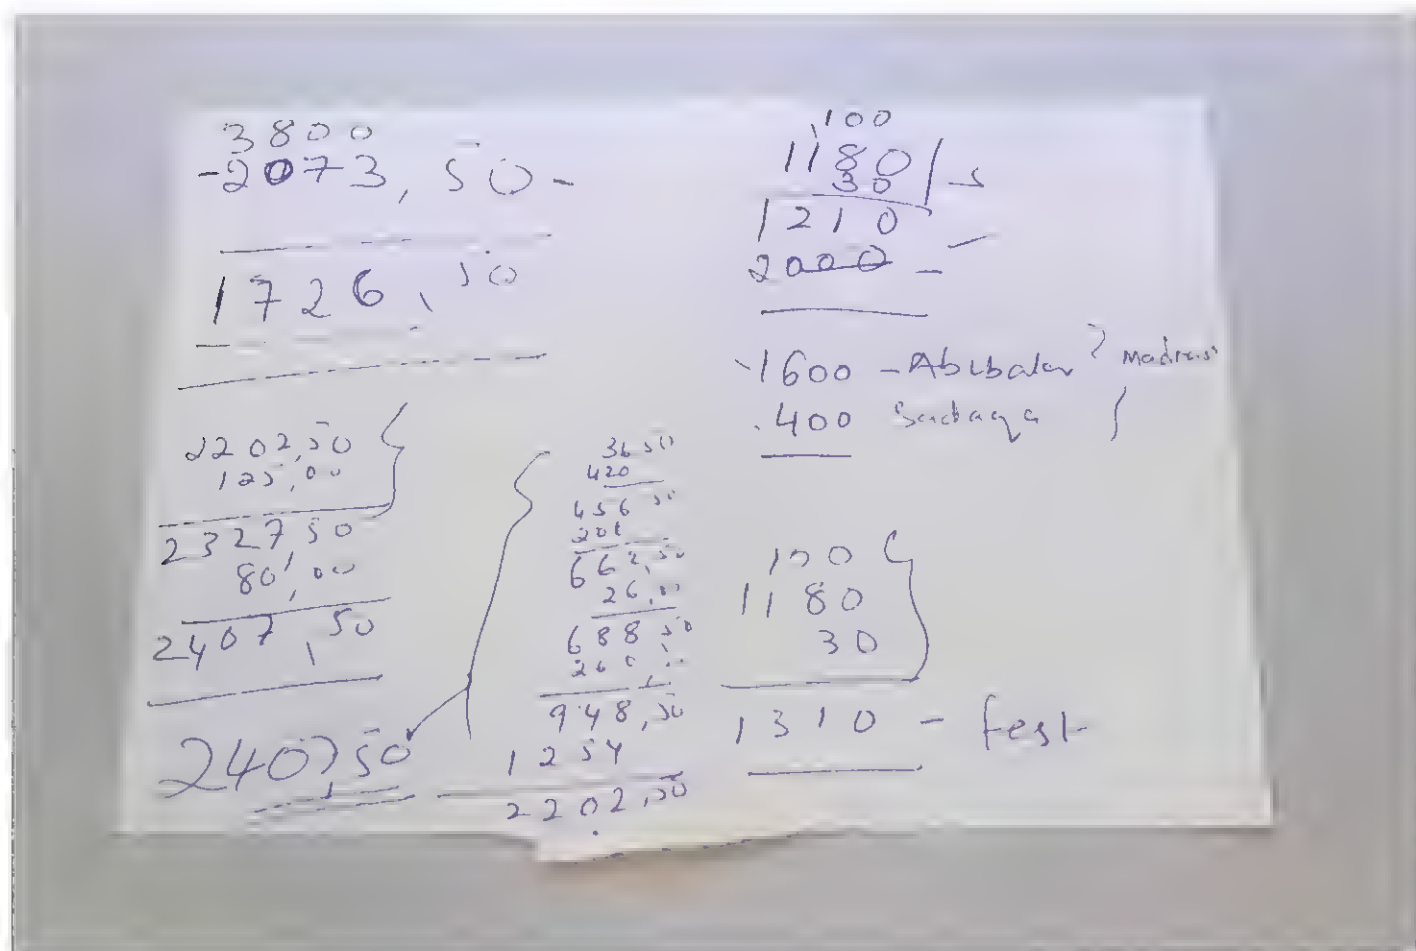 3800
-2073,50-
1726,50
2202,50
125,00
2327,50
80,00
2407,50
2407,50
36 50
420
456 50
206
662,50
26,00
688,50
260,00
948,50
1254
2202,50
100
1180
30
1210
2000 -
1600 - Abubakar
400 Sadaqa
100
1180
30
1310 - fest